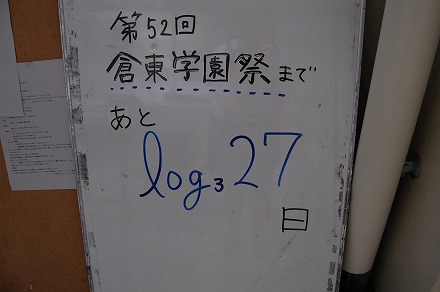 第52回
倉東学園祭まで
あと
log₃27
日